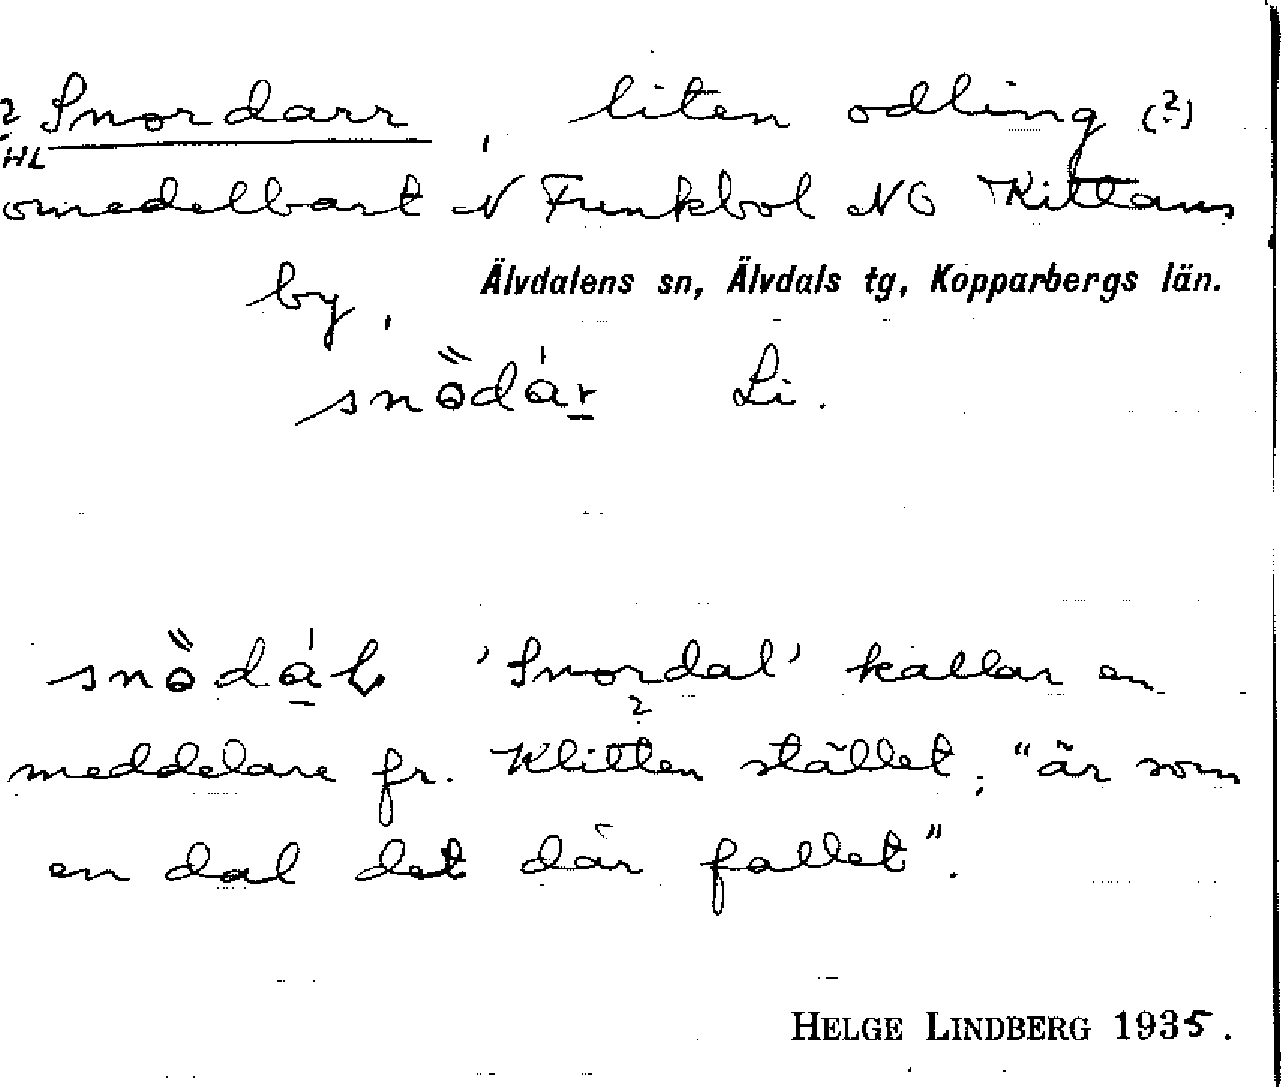 ? Snordarr, liten odling (?)
HL
omedelbart N Funkbol NO Kittans
by, Älvdalens sn, Älvdals tg, Kopparbergs län.
Li.
'Snordal' kallar en
?
meddelare fr. Klitten stället, "är som
en dal det där fallet".
HELGE LINDBERG 1935.